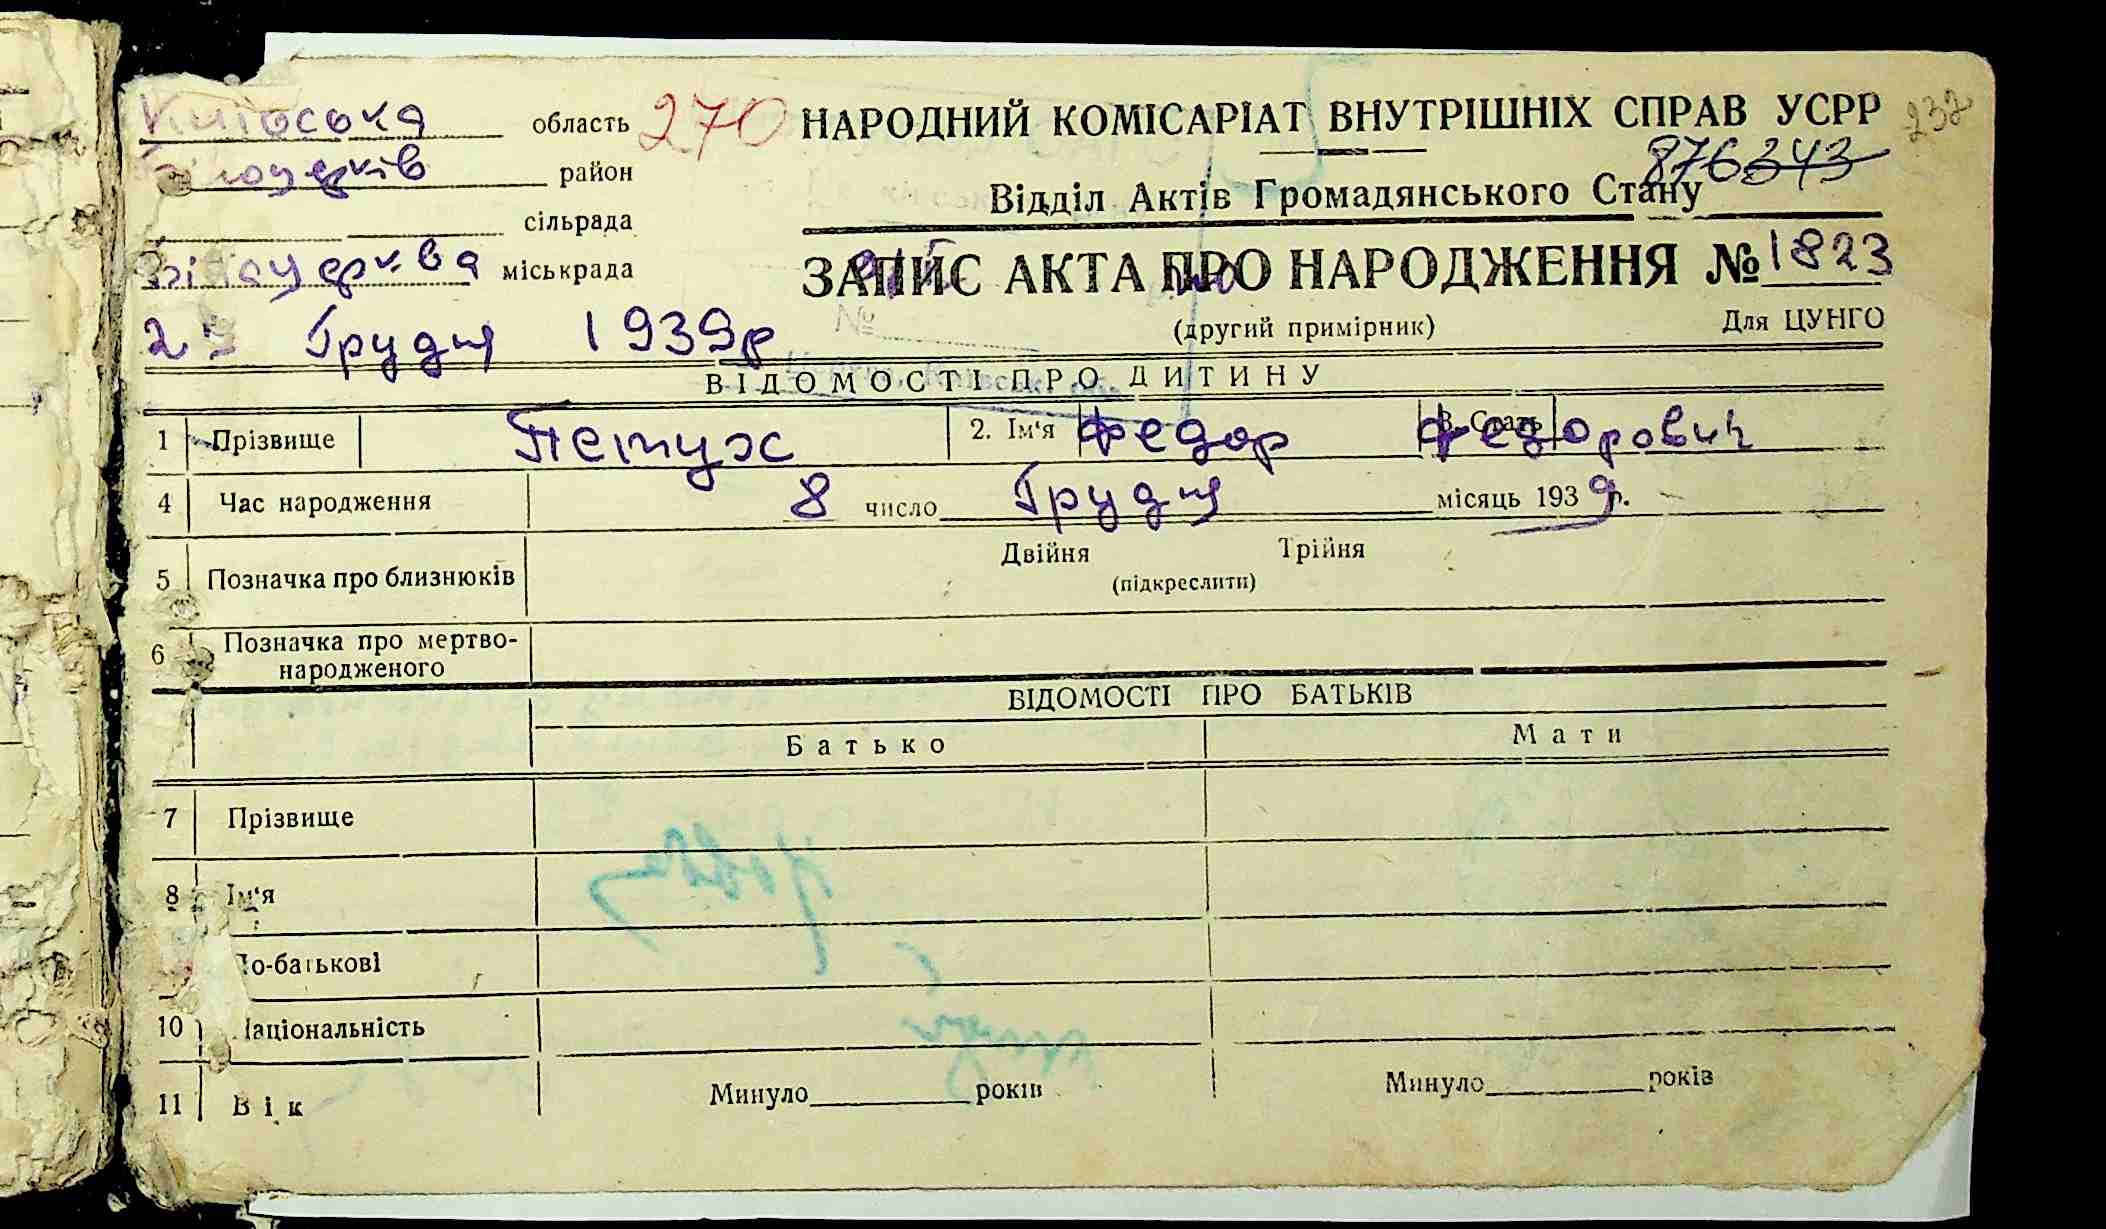 Київська область 270 НАРОДНИЙ КОМІСАРІАТ ВНУТРІШНІХ СПРАВ УСРР 232
Білоцерків район 876343
Відділ Актів Громадянського Стану
сільрада
Білацерква міськрада ЗАПИС АКТА ПРО НАРОДЖЕННЯ № 1823
(другий примірник) Для ЦУНГО
Грудня 1939р
№
ВІДОМОСТІ ПРО ДИТИНУ
1 Прізвище Петух 2. Ім'я Федор 3. Стать Федорович
4 Час народження 8 число Грудня місяць 1939 р.
5 Позначка про близнюків Двійня Трійня
(підкреслити)
6 Позначка про мертво-
народженого
ВІДОМОСТІ ПРО БАТЬКІВ
Батько Мати
7 Прізвище
8 Ім'я
По-батькові
10 Національність
11 Вік Минуло років Минуло років